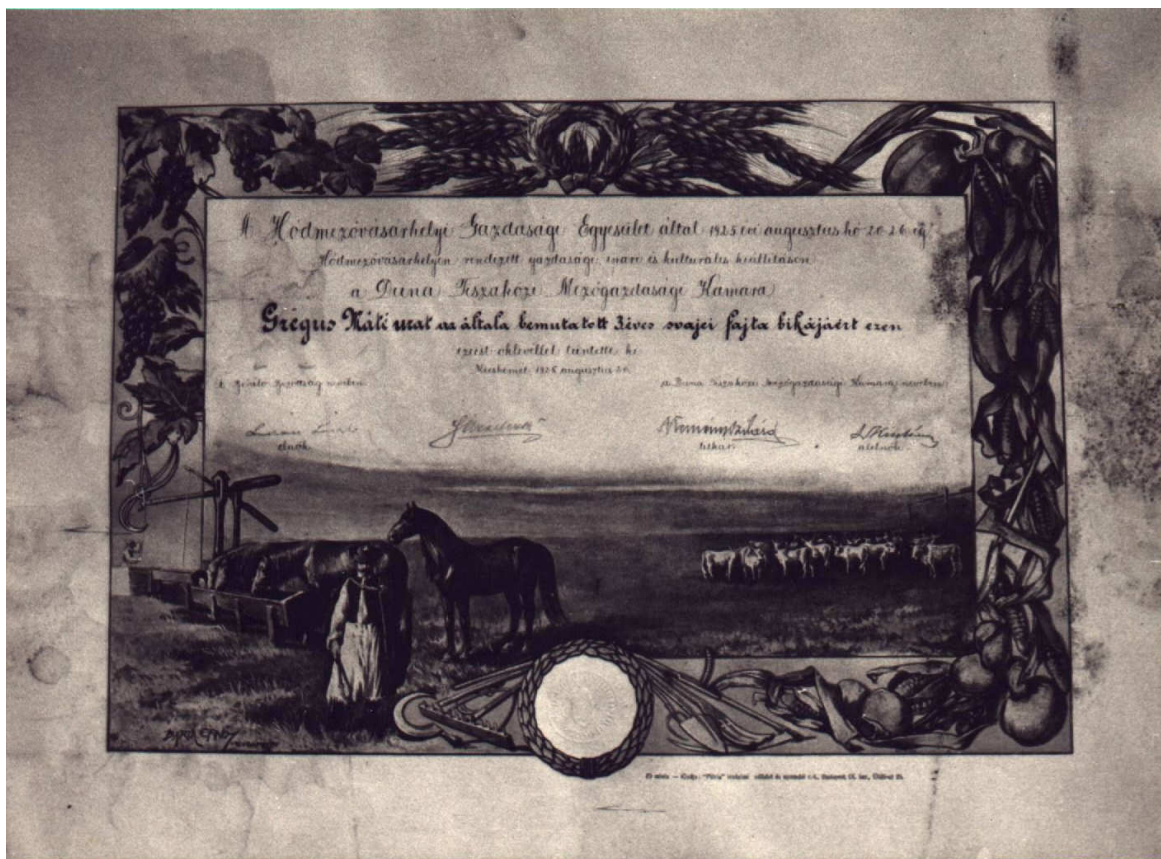 A Hódmezővásárhelyi Gazdasági Egyesület által 1925 évi augusztus hó 20-26 ig
Hódmezővásárhelyen rendezett gazdasági, ipari és kulturális kiállításon
a Duna Tiszaközi Mezőgazdasági Kamara
Gregus Máté urat az általa bemutatott 3 éves svajci fajta bikájáért ezen
ezüst oklevéllel tüntette ki
Kecskemét 1925 augusztus
A Biráló Bizottság nevében
a Duna Tiszaközi Mezőgazdasági Kamara nevében
elnök
titkár
alelnök